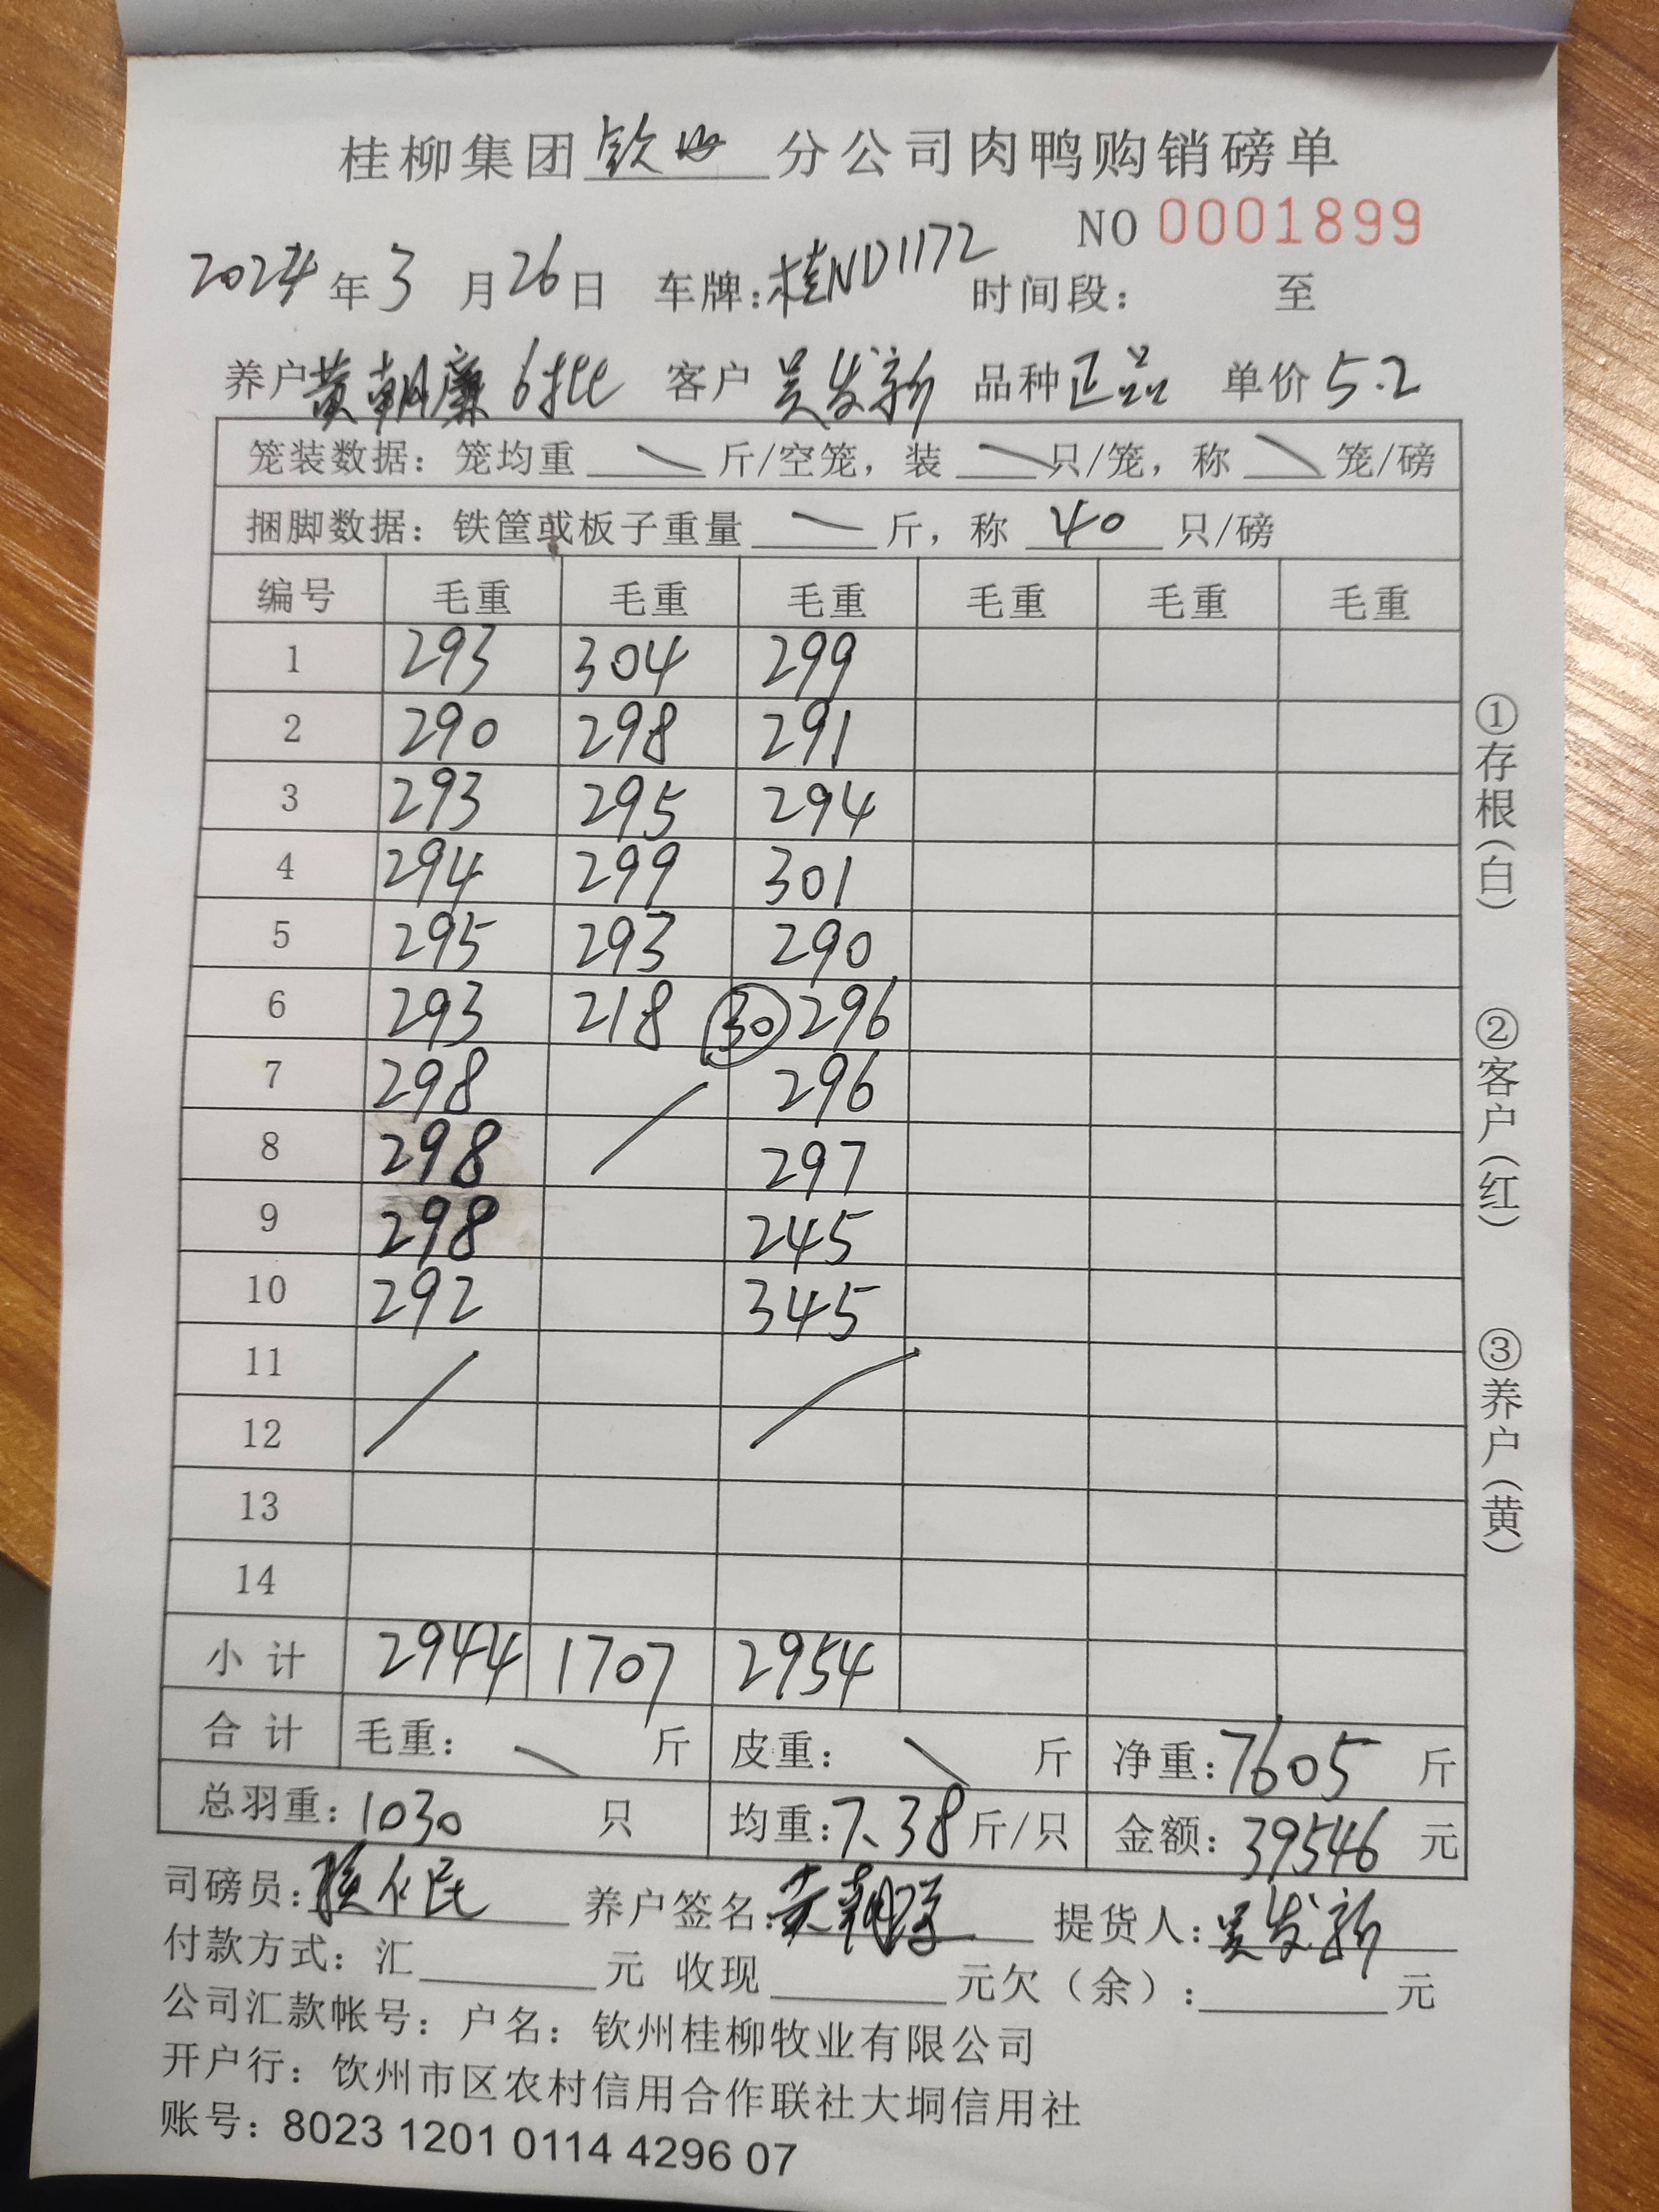 桂柳集团 钦州 分公司肉鸭购销磅单
NO 0001899
2024年3月26日 车牌:桂ND1172 时间段: 至
养户黄朝廉6批 客户吴发新 品种正品 单价5.2
笼装数据:笼均重 \ 斤/空笼,装 \ 只/笼,称 \ 笼/磅
捆脚数据:铁筐或板子重量 \ 斤,称 40 只/磅
编号 毛重 毛重 毛重 毛重 毛重 毛重
1 293 304 299
2 290 298 291
3 293 295 294
4 294 299 301
5 295 293 290
6 293 218 30 296
7 298 / 296
8 298 297
9 298 245
10 292 345
11 / /
12
13
14
小计 2944 1707 2954
合计 毛重: \ 斤 皮重: \ 斤 净重:7605 斤
总羽重:1030 只 均重:7.38斤/只 金额:39546 元
司磅员: 养户签名: 提货人:吴发新
付款方式:汇 元 收现 元欠(余): 元
公司汇款帐号:户名:钦州桂柳牧业有限公司
开户行:饮州市区农村信用合作联社大垌信用社
账号:8023 1201 0114 4296 07
①存根(白)
②客户(红)
③养户(黄)